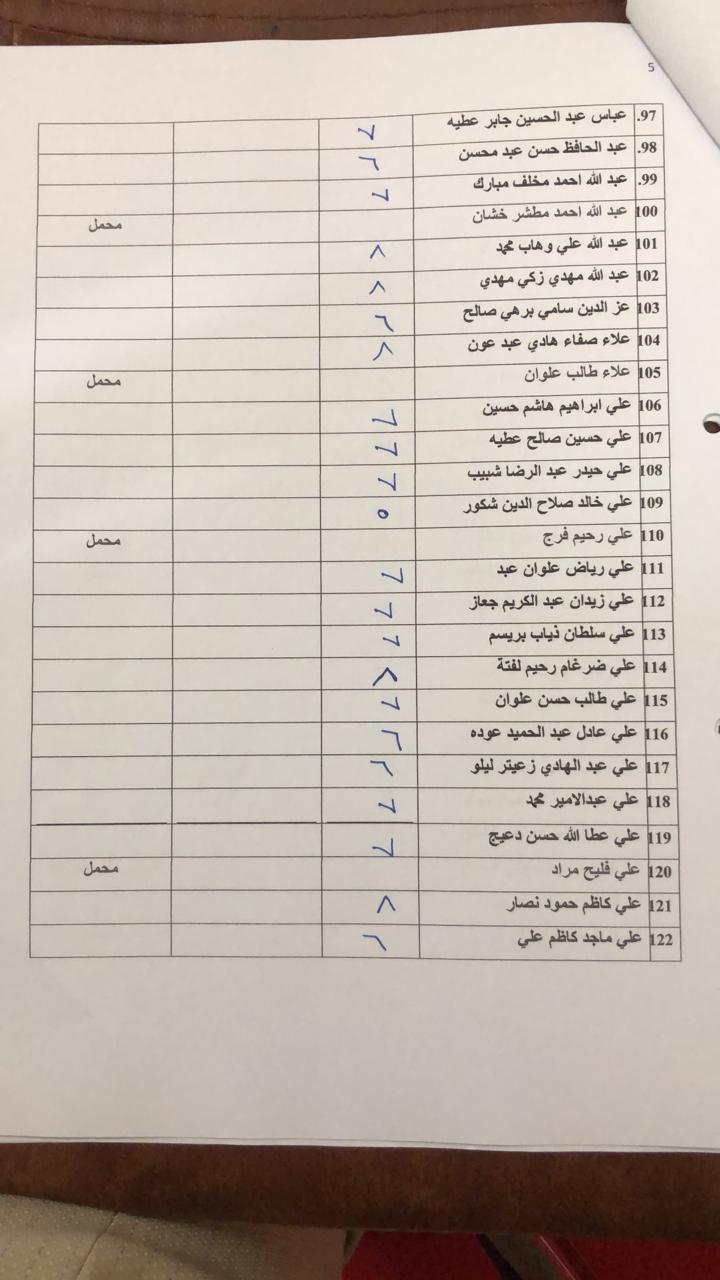 5
97. عباس عبد الحسين جابر عطيه ٦
98. عبد الحافظ حسن عبد محسن ٢
99. عبد الله احمد مخلف مبارك ٦
100 عبد الله احمد مطشر خشان محمل
101 عبد الله علي وهاب محمد
102 عبد الله مهدي زكي مهدي
103 عز الدين سامي برهي صالح ٢
104 علاء صفاء هادي عبد عون
105 علاء طالب علوان محمل
106 علي ابراهيم هاشم حسين ٦
107 علي حسين صالح عطيه ٦
108 علي حيدر عبد الرضا شبيب ٦
109 علي خالد صلاح الدين شكور ٥
110 علي رحيم فرج محمل
111 علي رياض علوان عبد ٦
112 علي زيدان عبد الكريم جعاز ٦
113 علي سلطان ذياب بريسم ٦
114 علي ضرغام رحيم لفتة
115 علي طالب حسن علوان ٦
116 علي عادل عبد الحميد عوده ٢
117 علي عبد الهادي زعيتر ليلو ٢
118 علي عبدالامير محمد ٦
119 علي عطا الله حسن دعيج ٦
120 علي فليح مراد محمل
121 علي كاظم حمود نصار
122 علي ماجد كاظم علي ٢